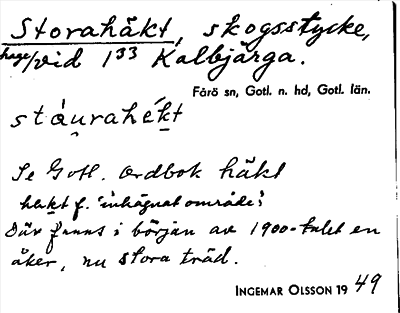 Storahäkt, skogsstycke,
hage/vid 1³³ Kalbjärga.
Fårö sn, Gotl. n. hd, Gotl. län.
stáu̯rahék̠t
Se Gotl. ordbok häkt
häkt f. 'inhägnat område'.
Där fanns i början av 1900-talet en
åker, nu stora träd.
INGEMAR OLSSON 19 49